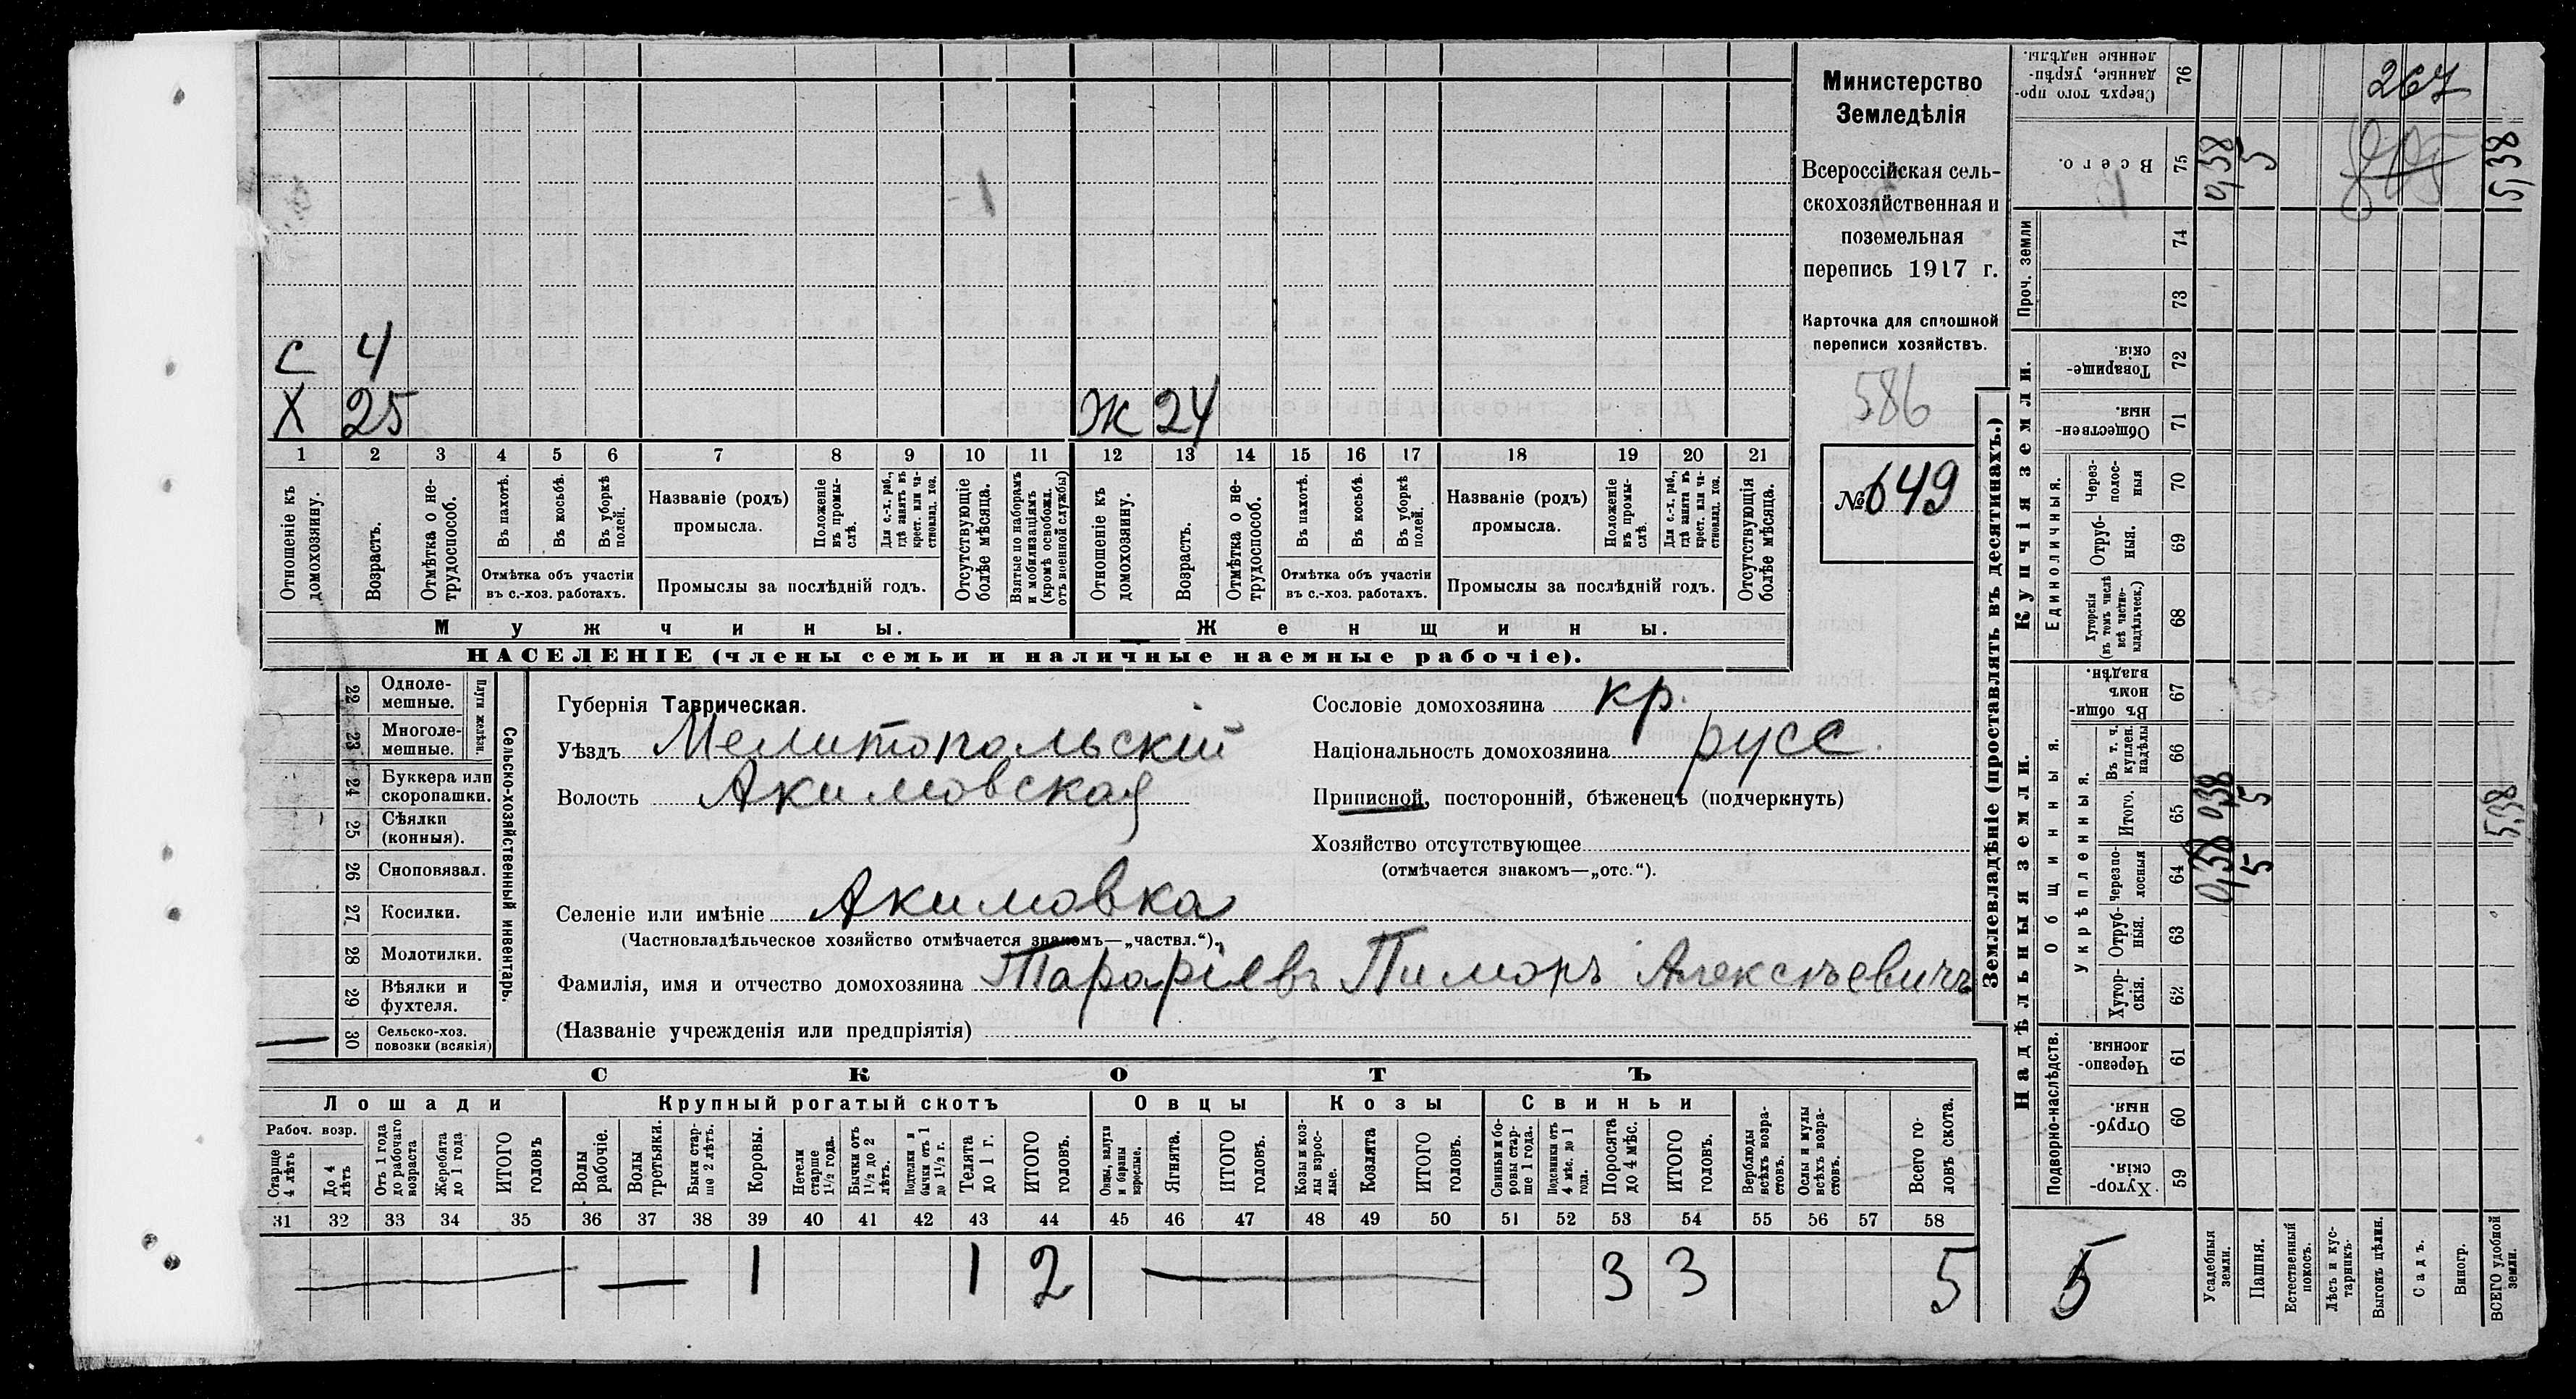 С 4
Х 25
Ж 24
1 2 3 4 5 6 7 8 9 10 11 12 13 14 15 16 17 18 19 20 21
Отношеніе къ домохозяину.
Возрастъ.
Отмѣтка о не-
трудоспособ.
Въ пахотѣ.
Въ косьбѣ.
Въ уборкѣ
полей.
Отмѣтка объ участіи
въ с.-хоз. работахъ.
Названіе (родъ)
промысла.
Положеніе
въ промы-
слѣ.
Для с.-х. раб.,
гдѣ занятъ въ
крест. или ча-
стновлад. хоз.
Промыслы за послѣдній годъ.
Отсутствующіе
болѣе мѣсяца.
Взятые по наборамъ
и мобилизаціямъ
(кромѣ освобожд.
отъ военной службы)
Отношеніе къ
домохозяину.
Возрастъ.
Отмѣтка о не-
трудоспособ.
Въ пахотѣ.
Въ косьбѣ.
Въ уборкѣ
полей.
Отмѣтка объ участіи
въ с.-хоз. работахъ.
Названіе (родъ)
промысла.
Положеніе
въ промы-
слѣ.
Для с.-х. раб.,
гдѣ занята въ
крест. или ча-
стновлад. хоз.
Промыслы за послѣдній годъ.
Отсутствующія
болѣе мѣсяца.
Мужчины.
Женщины.
НАСЕЛЕНІЕ (члены семьи и наличные наемные рабочіе).
Министерство
Земледѣлія
Всероссійская сель-
скохозяйственная и
поземельная
перепись 1917 г.
Карточка для сплошной
переписи хозяйствъ.
586
№ 649
22 Одноле-
мешные.
23 Многоле-
мешные.
Плуги желѣзн.
24 Буккера или
скоропашки.
25 Сѣялки
(конныя).
26 Сноповязал.
27 Косилки.
28 Молотилки.
29 Вѣялки и
фухтеля.
30 Сельско-хоз.
повозки (всякія)
Сельско-хозяйственный инвентарь.
Губернія Таврическая.
Уѣздъ Мелитопольскій
Волость Акимовская
Селеніе или имѣніе Акимовка
(Частновладѣльческое хозяйство отмѣчается знакомъ—„частвл.“).
Фамилія, имя и отчество домохозяина Тараріевъ Пиморъ Алексѣевичъ
(Названіе учрежденія или предпріятія)
Сословіе домохозяина кр.
Національность домохозяина русс.
Приписной, посторонній, бѣженецъ (подчеркнуть)
Хозяйство отсутствующее
(отмѣчается знакомъ—„отс.“).
СКОТЪ
Лошади
Крупный рогатый скотъ
Овцы
Козы
Свиньи
Рабоч. возр.
Старше
4 лѣтъ
До 4
лѣтъ
Отъ 1 года
до рабочаго
возраста
Жеребята
до 1 года
ИТОГО
головъ
Волы
рабочіе.
Волы
третьяки.
Быки стар-
ше 2 лѣтъ.
Коровы.
Нетели
старше
1½ года.
Бычки отъ
1½ до 2
лѣтъ.
Подтелки и
бычки отъ 1
до 1½ г.
Телята
до 1 г.
ИТОГО
головъ.
Овцы, валухи
и бараны
взрослые.
Ягнята.
ИТОГО
головъ.
Козы и коз-
лы взрос-
лые.
Козлята
ИТОГО
головъ.
Свиньи и бо-
ровы стар-
ше 1 года.
Подсвинки отъ
4 мѣс. до 1
года.
Поросята
до 4 мѣс.
ИТОГО
головъ.
Верблюды
всѣхъ возра-
стовъ.
Ослы и мулы
всѣхъ возра-
стовъ.
Всего го-
ловъ скота.
31 32 33 34 35 36 37 38 39 40 41 42 43 44 45 46 47 48 49 50 51 52 53 54 55 56 57 58
1 1 2 3 3 5
Землевладѣніе (проставлять въ десятинахъ.)
Надѣльныя земли.
Купчія земли.
Проч. земли
Подворно-наслѣдств.
Общинныя.
Укрѣпленныя.
Единоличныя.
Сверхъ того про-
данные, укрѣп-
ленные надѣлы.
76
Всего.
75
74
73
Товарище-
скія.
72
Обществен-
ныя.
71
Через-
полос-
ныя
70
Отруб-
ныя.
69
Хуторскія
(въ томъ числѣ
всѣ частно-
владѣльческ.)
68
Въ общи-
номъ
владѣн.
67
Въ т. ч.
куплен.
надѣлы
66
Итого.
65
Черезпо-
лосныя
64
Отруб-
ныя.
63
Хутор-
скія.
62
Черезпо-
лосныя.
61
Отруб-
ныя.
60
Хутор-
скія.
59
Усадебныя
земли.
Пашня.
Естественный
покосъ.
Лѣсъ и кус-
тарникъ.
Выгонъ цѣлин.
Садъ.
Виногр.
ВСЕГО удобной
земли.
267
0,38
5
5,38
0,38 0,38
5 5
5,38
5